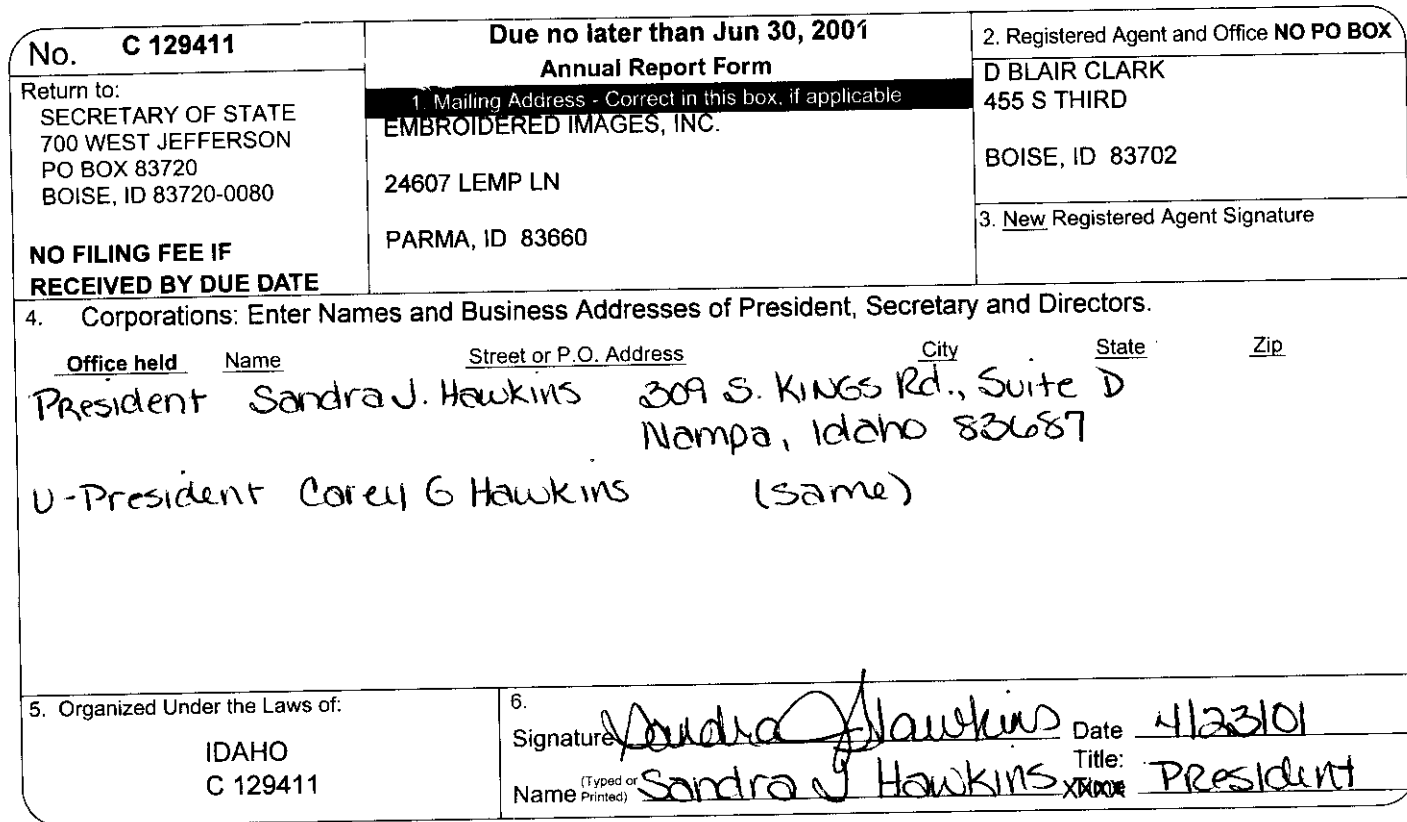 No. C 129411
Return to:
SECRETARY OF STATE
700 WEST JEFFERSON
PO BOX 83720
BOISE, ID 83720-0080
NO FILING FEE IF
RECEIVED BY DUE DATE
Due no later than Jun 30, 2001
Annual Report Form
1. Mailing Address - Correct in this box, if applicable
EMBROIDERED IMAGES, INC.
24607 LEMP LN
PARMA, ID 83660
2. Registered Agent and Office NO PO BOX
D BLAIR CLARK
455 S THIRD
BOISE, ID 83702
3. New Registered Agent Signature
4. Corporations: Enter Names and Business Addresses of President, Secretary and Directors.
Office held Name Street or P.O. Address City State Zip
President Sandra J. Hawkins 309 S. Kings Rd., Suite D
Nampa, Idaho 83687
V-President Corey G Hawkins (same)
5. Organized Under the Laws of:
IDAHO
C 129411
6.
Signature Sandra J Hawkins Date 4/23/01
Name (Typed or Printed) Sandra J Hawkins Title: President